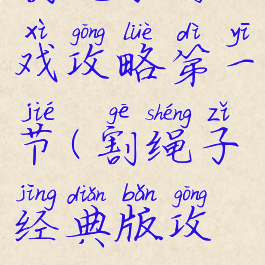 xì gōng lüè dì yī
戏攻略第一
jié gē shéng zǐ
节(割绳子
jīng diǎn bǎn gōng
经典版攻